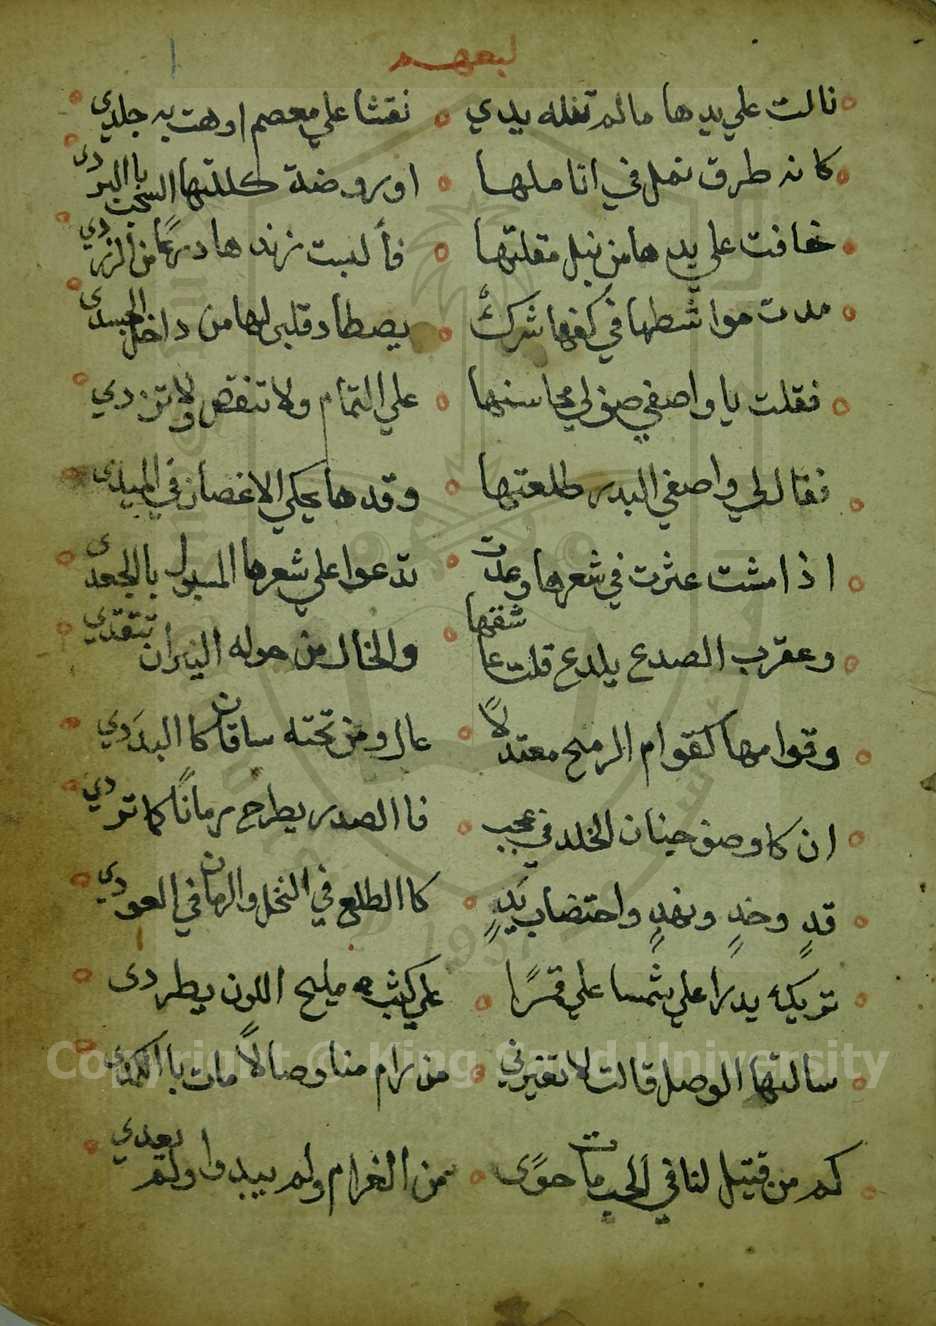 لبعهم
نالت علي يدها مالم تنله يدي نقشا علي معصم اوهت به جلدي
كانه طرق نمل في اناملها او روضة كللتها السحب باالبردي
خافت علي يدها من نبل مقلتها فألبست زندها درعا من الزردي
مدت مواشطها في كفها شرك يصطاد قلبي لها من داخل الجسدي
فقلت يا واصفي صف لي محاسنها علي التمام ولا تنقص ولا تزدي
فقال لي واصفي البدر طلعتها وقدها يحكي الاغصان في الميلدي
اذا مشت عثرت في شعرها وعدت تدعوا علي شعرها المسبول باالجعدي
وعقرب الصدع يلدع قلت عاشقها والخال من حوله النيران تتقدي
وقوامها كقوام الرمح معتدلا عال ومن تحته ساقان كا البدي
ان كا وصف جينان الخلد في عجب فا الصدر يطرح رمانًا كما تردي
قدٍ وخدٍ ونهدٍ واحتضاب يدٍ كا الطلع في النخل والرمان في العودي
تريكه بدرا علي شمسا علي قمرًا علي كثب مليح اللون يطردي
سالتها الوصل قالت لا تغيرني من رام منا وصالًا مات باالكمدي
كم من قتيل لنا في الحب مات جوًى من الغرام ولم يبدوا ولم يعدي
Copyright © King Saud University
1957